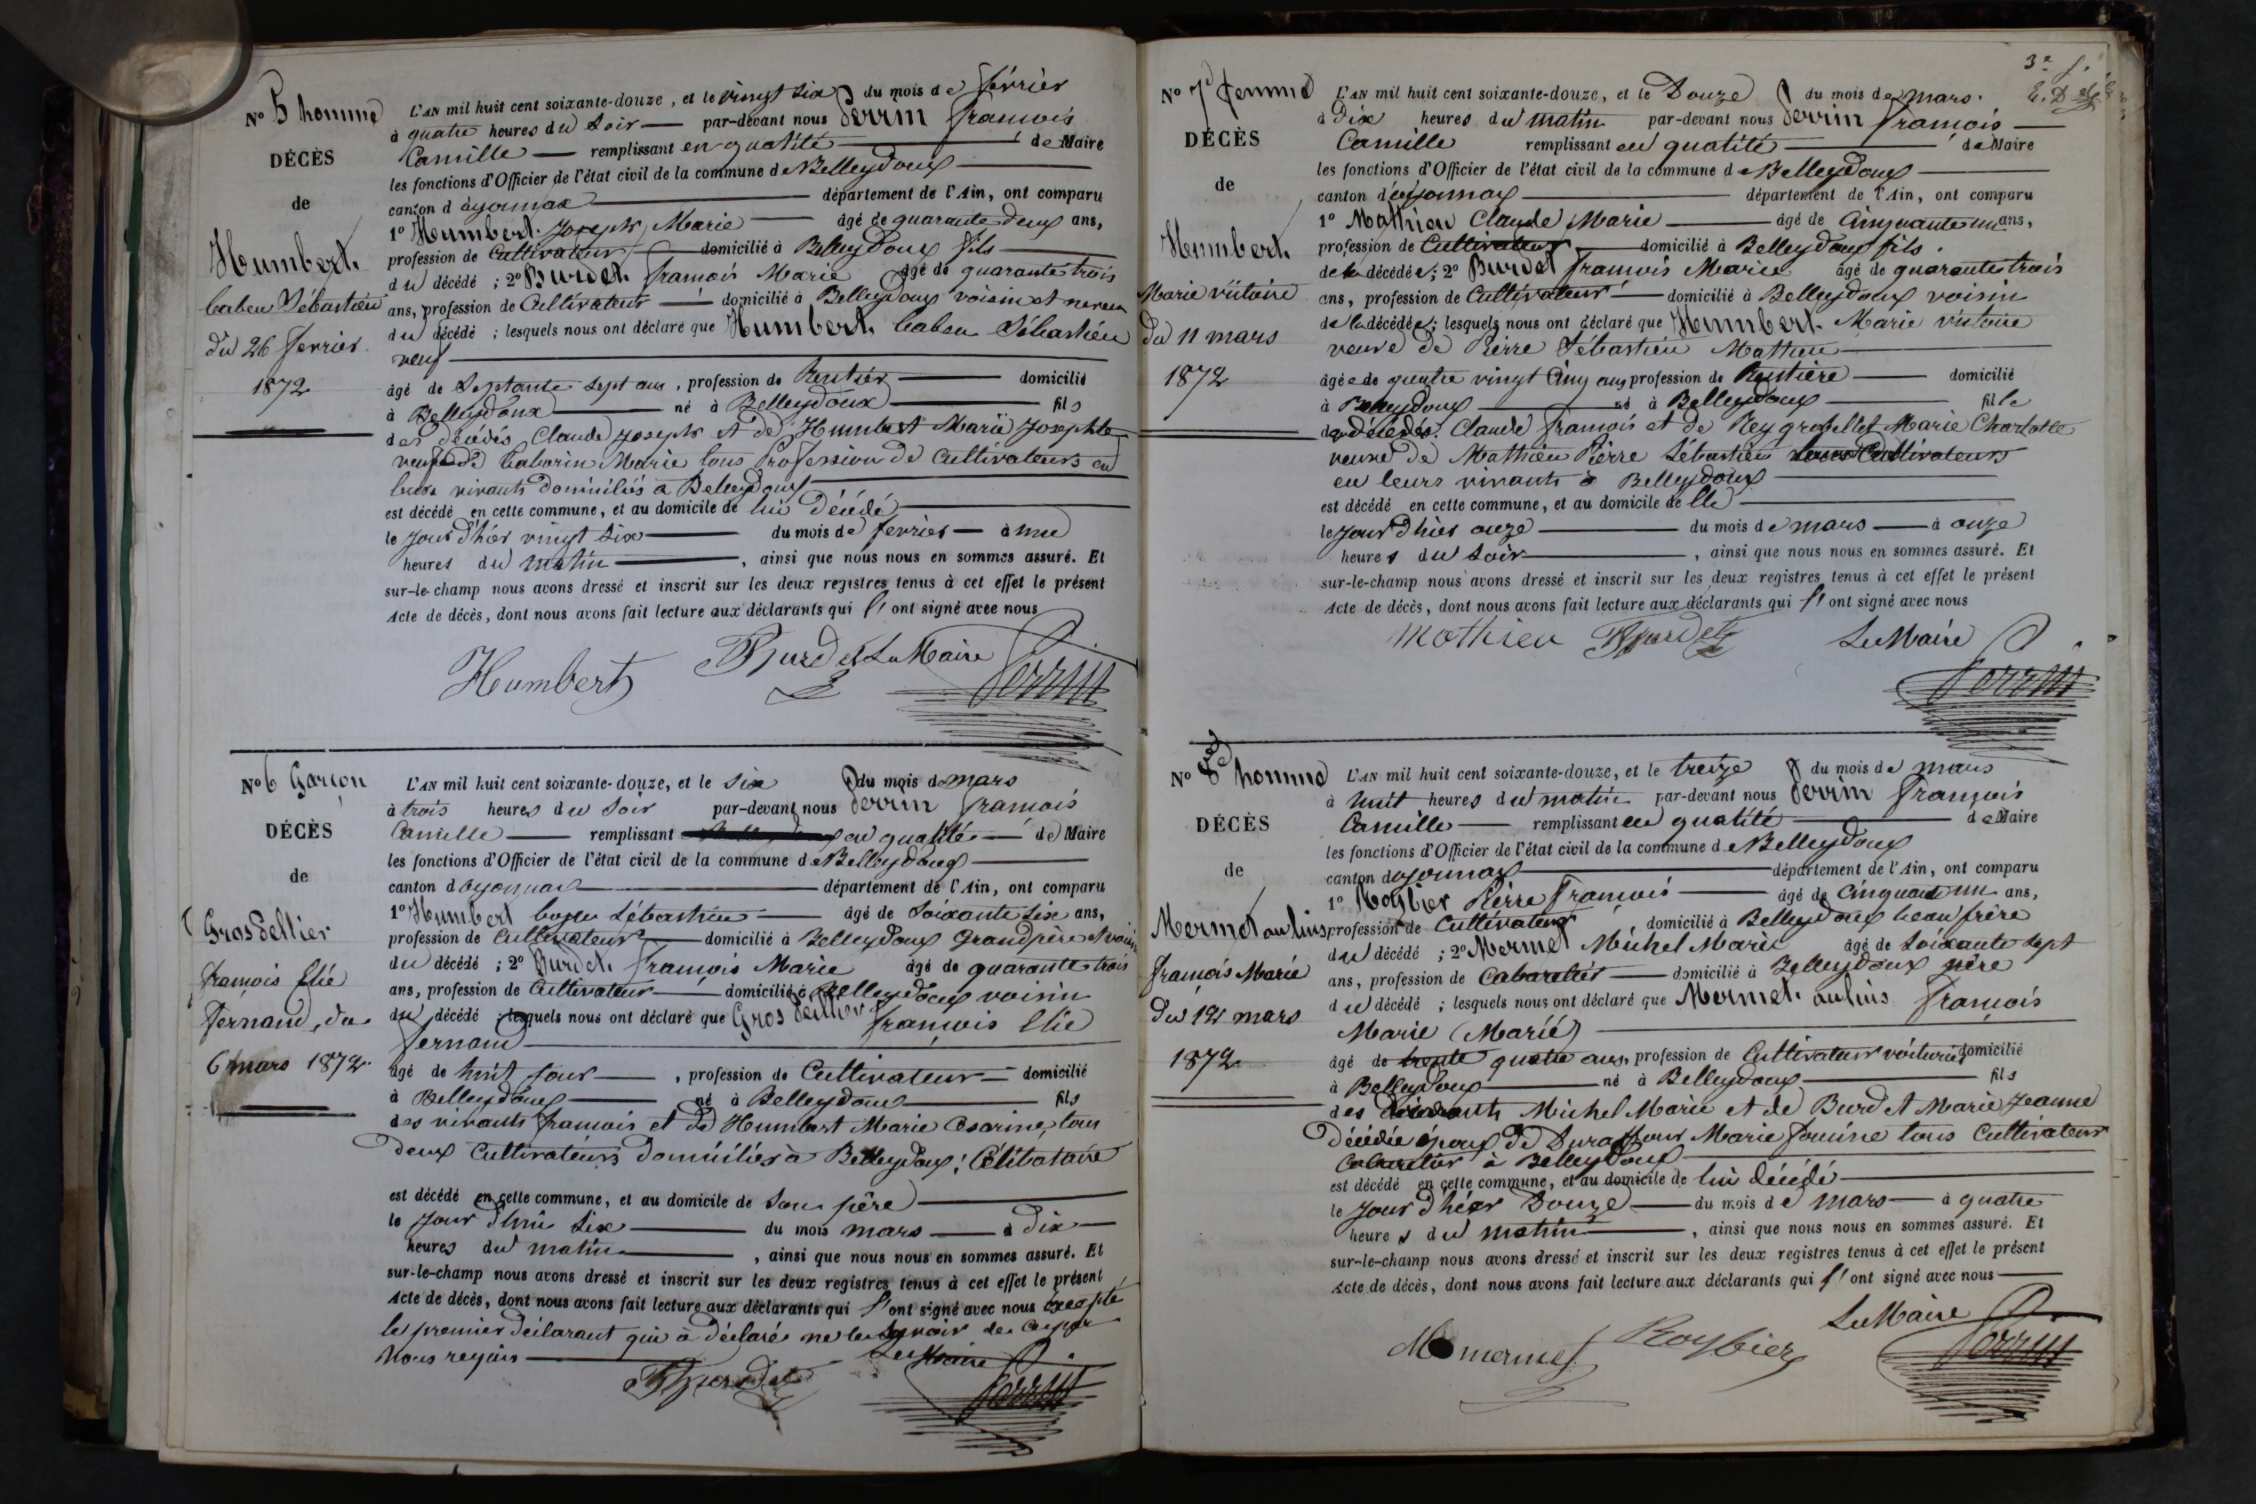 No 5 homme
DÉCÈS
de
Humbert.
Caben Sébastien
du 26 fevrier
1872
L'AN mil huit cent soixante-douze, et le vingt six du mois de février
à quatre heures du soir par-devant nous Perrin francois
Camille remplissant en qualité de Maire
les fonctions d'Officier de l'état civil de la commune de Belleydoux
canton d'oyonnax département de l'Ain, ont comparu
1º Humbert. Joseph Marie âgé de quarante deux ans,
profession de Cultivateur domicilié à Belleydoux fils
du décédé ; 2º Burdet. francois Marie âgé de quarante trois
ans, profession de Cultivateur domicilié à Belleydoux voisin et neveu
du décédé ; lesquels nous ont déclaré que Humbert. Caben Sébastien
veuf
âgé de Septante sept ans, profession de Rentier domicilié
à Belleydoux né à Belleydoux fils
des décédés Claude Joseph et de Humbert Marie Josephte
veuf de Cabarin Marie tous Profession de Cultivateurs en
leurs vivants domiciliés à Belleydoux
est décédé en cette commune, et au domicile de lui décédé
le jour d'hier vingt six du mois de fevrier à une
heures du matin, ainsi que nous nous en sommes assuré. Et
sur-le-champ nous avons dressé et inscrit sur les deux registres tenus à cet effet le présent
Acte de décès, dont nous avons fait lecture aux déclarants qui l' ont signé avec nous
Humbert Burdet Le Maire Perrin
No 6 Garçon
DÉCÈS
de
Gros Pellier
francois Elie
Fernand, du
6 mars 1872
L'AN mil huit cent soixante-douze, et le six du mois de mars
à trois heures du soir par-devant nous Perrin francois
Camille remplissant en qualité de Maire
les fonctions d'Officier de l'état civil de la commune de Belleydoux
canton d'oyonnax département de l'Ain, ont comparu
1º Humbert Sébastien âgé de Soixante six ans,
profession de Cultivateur domicilié à Belleydoux Grand père et voisin
du décédé ; 2º Burdet. francois Marie âgé de quarante trois
ans, profession de Cultivateur domicilié à Belleydoux voisin
du décédé ; lesquels nous ont déclaré que Gros Pellier francois Elie
fernand
âgé de huit jour, profession de Cultivateur domicilié
à Belleydoux né à Belleydoux fils
des vivants francois et de Humbert Marie Cesarine, tous
deux Cultivateurs domiciliés à Belleydoux; Célibataire
est décédé en cette commune, et au domicile de son père
le jour d'hui six du mois mars à dix
heures du matin, ainsi que nous nous en sommes assuré. Et
sur-le-champ nous avons dressé et inscrit sur les deux registres tenus à cet effet le présent
Acte de décès, dont nous avons fait lecture aux déclarants qui l' ont signé avec nous excepté
le premier déclarant qui à déclaré ne le savoir de ce par
nous requis
Burdet Le Maire Perrin
3e f.
No 7 femme
DÉCÈS
de
Humbert.
Marie victoire
du 11 mars
1872
L'AN mil huit cent soixante-douze, et le Douze du mois de mars.
à Dix heures du matin par-devant nous Perrin francois
Camille remplissant en qualité de Maire
les fonctions d'Officier de l'état civil de la commune de Belleydoux
canton d'oyonnax département de l'Ain, ont comparu
1º Mathieu Claude Marie âgé de Cinquante un ans,
profession de Cultivateur domicilié à Belleydoux fils.
de la décédée; 2º Burdet francois Marie âgé de quarante trois
ans, profession de Cultivateur domicilié à Belleydoux voisin
de la décédée; lesquels nous ont déclaré que Humbert. Marie victoire
veuve de Pierre Sébastien Mathieu
âgée de quatre vingt Cinq ans profession de Rentière domicilié
à Belleydoux né à Belleydoux fille
des décédés Claude francois et de Reygrobellet Marie Charlotte
veuve de Mathieu Pierre Sébastien tous Cultivateurs
en leurs vivants à Belleydoux
est décédé en cette commune, et au domicile de elle
le jour d'hier onze du mois de mars à onze
heures du soir, ainsi que nous nous en sommes assuré. Et
sur-le-champ nous avons dressé et inscrit sur les deux registres tenus à cet effet le présent
Acte de décès, dont nous avons fait lecture aux déclarants qui l' ont signé avec nous
Mathieu Burdet Le Maire Perrin
No 8 homme
DÉCÈS
de
Mermet au luis
francois Marie
du 12 mars
1872
L'AN mil huit cent soixante-douze, et le treize du mois de mars
à huit heures du matin par-devant nous Perrin françois
Camille remplissant en qualité de Maire
les fonctions d'Officier de l'état civil de la commune de Belleydoux
canton d'oyonnax département de l'Ain, ont comparu
1º Roybier Pierre francois âgé de Cinquante un ans,
profession de Cultivateur domicilié à Belleydoux beau frère
du décédé ; 2º Mermet Michel Marie âgé de soixante sept
ans, profession de Cabaretier domicilié à Belleydoux père
du décédé ; lesquels nous ont déclaré que Mermet. au luis françois
Marie (Marié)
âgé de trente quatre ans, profession de Cultivateur voiturier domicilié
à Belleydoux né à Belleydoux fils
des Michel Marie et de Burdet Marie Jeanne
Décédée époux de Duraffour Marie Josuine tous Cultivateur
Cabaretier à Belleydoux
est décédé en cette commune, et au domicile de lui décédé
le jour d'hier Douze du mois de mars à quatre
heures du matin, ainsi que nous nous en sommes assuré. Et
sur-le-champ nous avons dressé et inscrit sur les deux registres tenus à cet effet le présent
Acte de décès, dont nous avons fait lecture aux déclarants qui l' ont signé avec nous
Mermet Roybier Le Maire Perrin